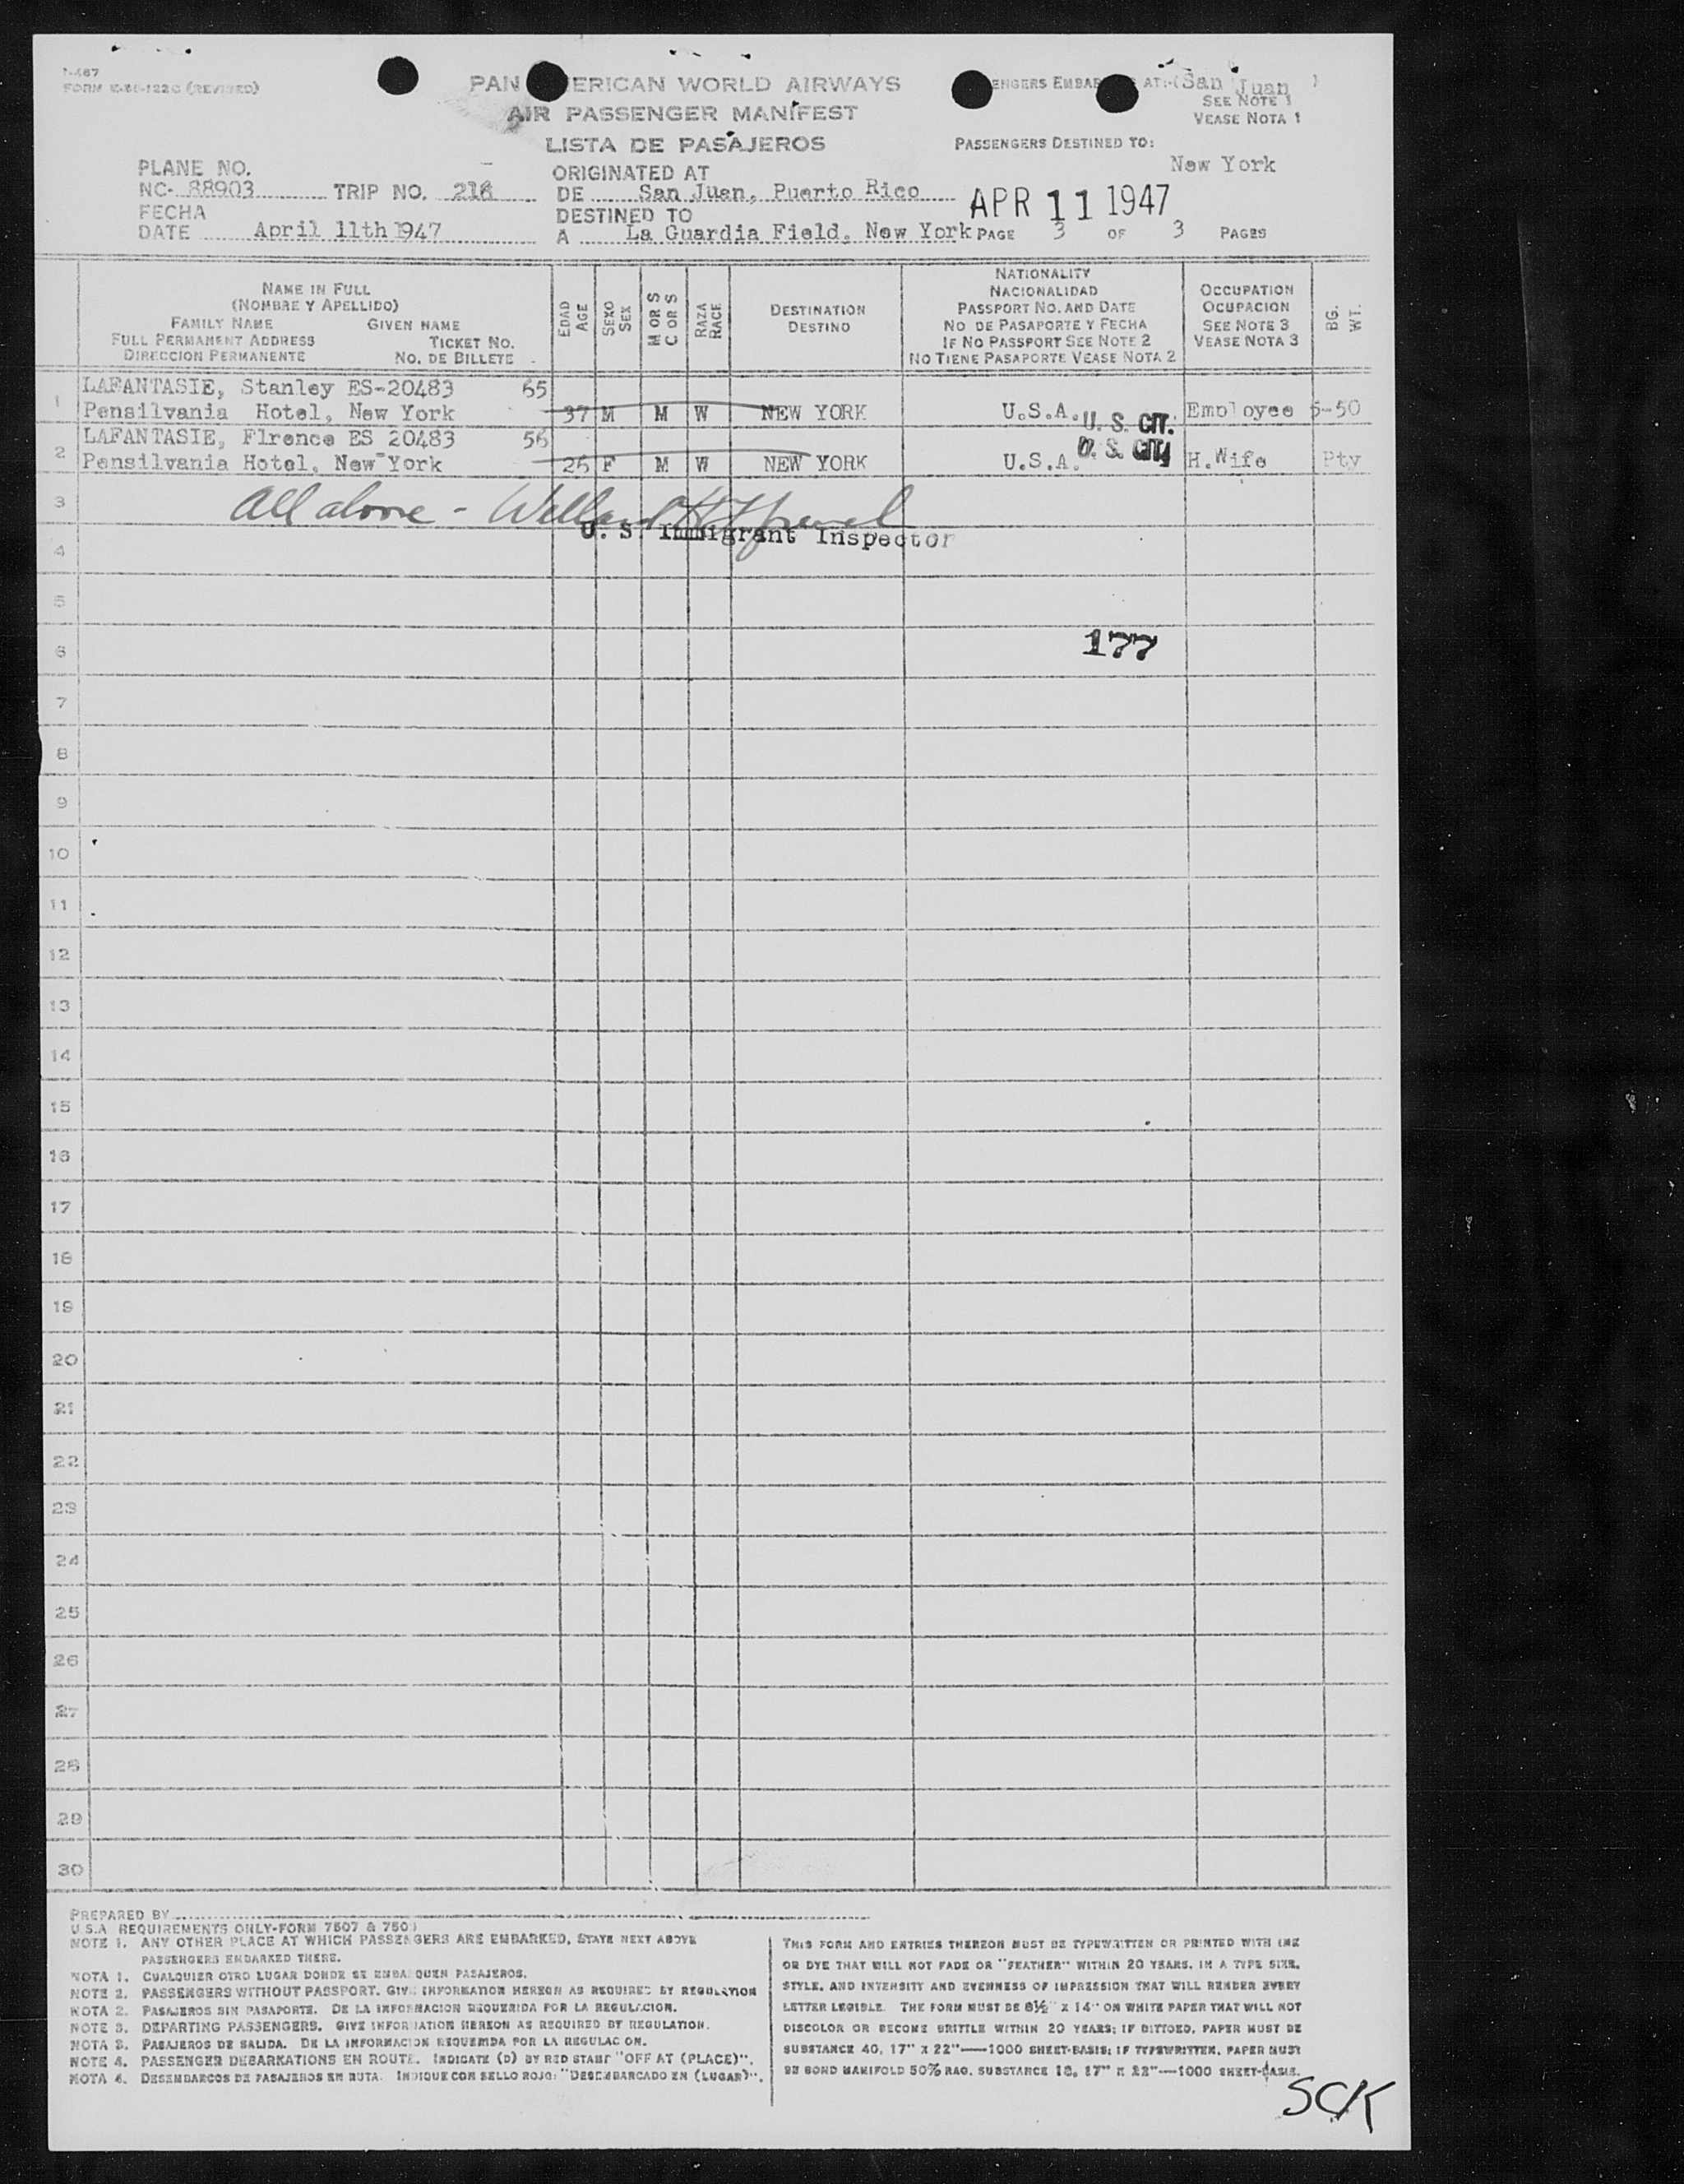 I-467
FORM
(REVISED)
PAN ERICAN WORLD AIRWAYS
AIR PASSENGER MANIFEST
LISTA DE PASAJEROS
ENGERS EMBAR AT:-(San Juan )
SEE NOTE 1
VEASE NOTA 1
PASSENGERS DESTINED TO:
New York
PLANE NO.
NC- 88903 TRIP NO. 216
ORIGINATED AT
DE San Juan, Puerto Rico
APR 11 1947
FECHA
DATE April 11th 1947
DESTINED TO
A La Guardia Field, New York PAGE 3 OF 3 PAGES
NAME IN FULL
(NOMBRE Y APELLIDO)
FAMILY NAME GIVEN NAME
FULL PERMANENT ADDRESS TICKET NO.
DIRECCION PERMANENTE NO. DE BILLETE
EDAD
AGE
SEXO
SEX
M OR S
C OR S
RAZA
RACE
DESTINATION
DESTINO
NATIONALITY
NACIONALIDAD
PASSPORT NO. AND DATE
NO DE PASAPORTE Y FECHA
IF NO PASSPORT SEE NOTE 2
NO TIENE PASAPORTE VEASE NOTA 2
OCCUPATION
OCUPACION
SEE NOTE 3
VEASE NOTA 3
BG.
WT.
1 LAFANTASIE, Stanley ES-20483 65
Pensilvania Hotel, New York 37 M M W NEW YORK U.S.A. U. S. CIT. Employee 5-50
2 LAFANTASIE, Flrence ES 20483 56
Pensilvania Hotel, New York 26 F M W NEW YORK U.S.A. U. S. CIT. H.Wife Pty
3 All above - Willard
U. S. Immigrant Inspector
4
5
6 177
7
8
9
10
11
12
13
14
15
16
17
18
19
20
21
22
23
24
25
26
27
28
29
30
PREPARED BY
U.S.A REQUIREMENTS ONLY-FORM 7507 & 750
NOTE 1. ANY OTHER PLACE AT WHICH PASSENGERS ARE EMBARKED, STATE NEXT ABOVE
PASSENGERS EMBARKED THERE.
NOTA 1. CUALQUIER OTRO LUGAR DONDE SE EMBARQUEN PASAJEROS.
NOTE 2. PASSENGERS WITHOUT PASSPORT. GIVE INFORMATION HEREON AS REQUIRED BY REGULATION
NOTA 2. PASAJEROS SIN PASAPORTE. DE LA INFORMACION REQUERIDA POR LA REGULACION.
NOTE 3. DEPARTING PASSENGERS. GIVE INFORMATION HEREON AS REQUIRED BY REGULATION.
NOTA 3. PASAJEROS DE SALIDA. DE LA INFORMACION REQUERIDA POR LA REGULACION.
NOTE 4. PASSENGER DEBARKATIONS EN ROUTE. INDICATE (D) BY RED STAMP "OFF AT (PLACE)".
NOTA 4. DESEMBARCOS DE PASAJEROS EN RUTA. INDIQUE CON SELLO ROJO: "DESEMBARCADO EN (LUGAR)".
THIS FORM AND ENTRIES THEREON MUST BE TYPEWRITTEN OR PRINTED WITH INK
OR DYE THAT WILL NOT FADE OR "FEATHER" WITHIN 20 YEARS, IN A TYPE SIZE,
STYLE, AND INTENSITY AND EVENNESS OF IMPRESSION THAT WILL RENDER EVERY
LETTER LEGIBLE. THE FORM MUST BE 8½" X 14" ON WHITE PAPER THAT WILL NOT
DISCOLOR OR BECOME BRITTLE WITHIN 20 YEARS; IF DITTOED, PAPER MUST BE
SUBSTANCE 40, 17" X 22"—1000 SHEET-BASIS; IF TYPEWRITTEN, PAPER MUST
BE BOND MANIFOLD 50% RAG, SUBSTANCE 18, 17" X 22"—1000 SHEET-BASIS.
SCK